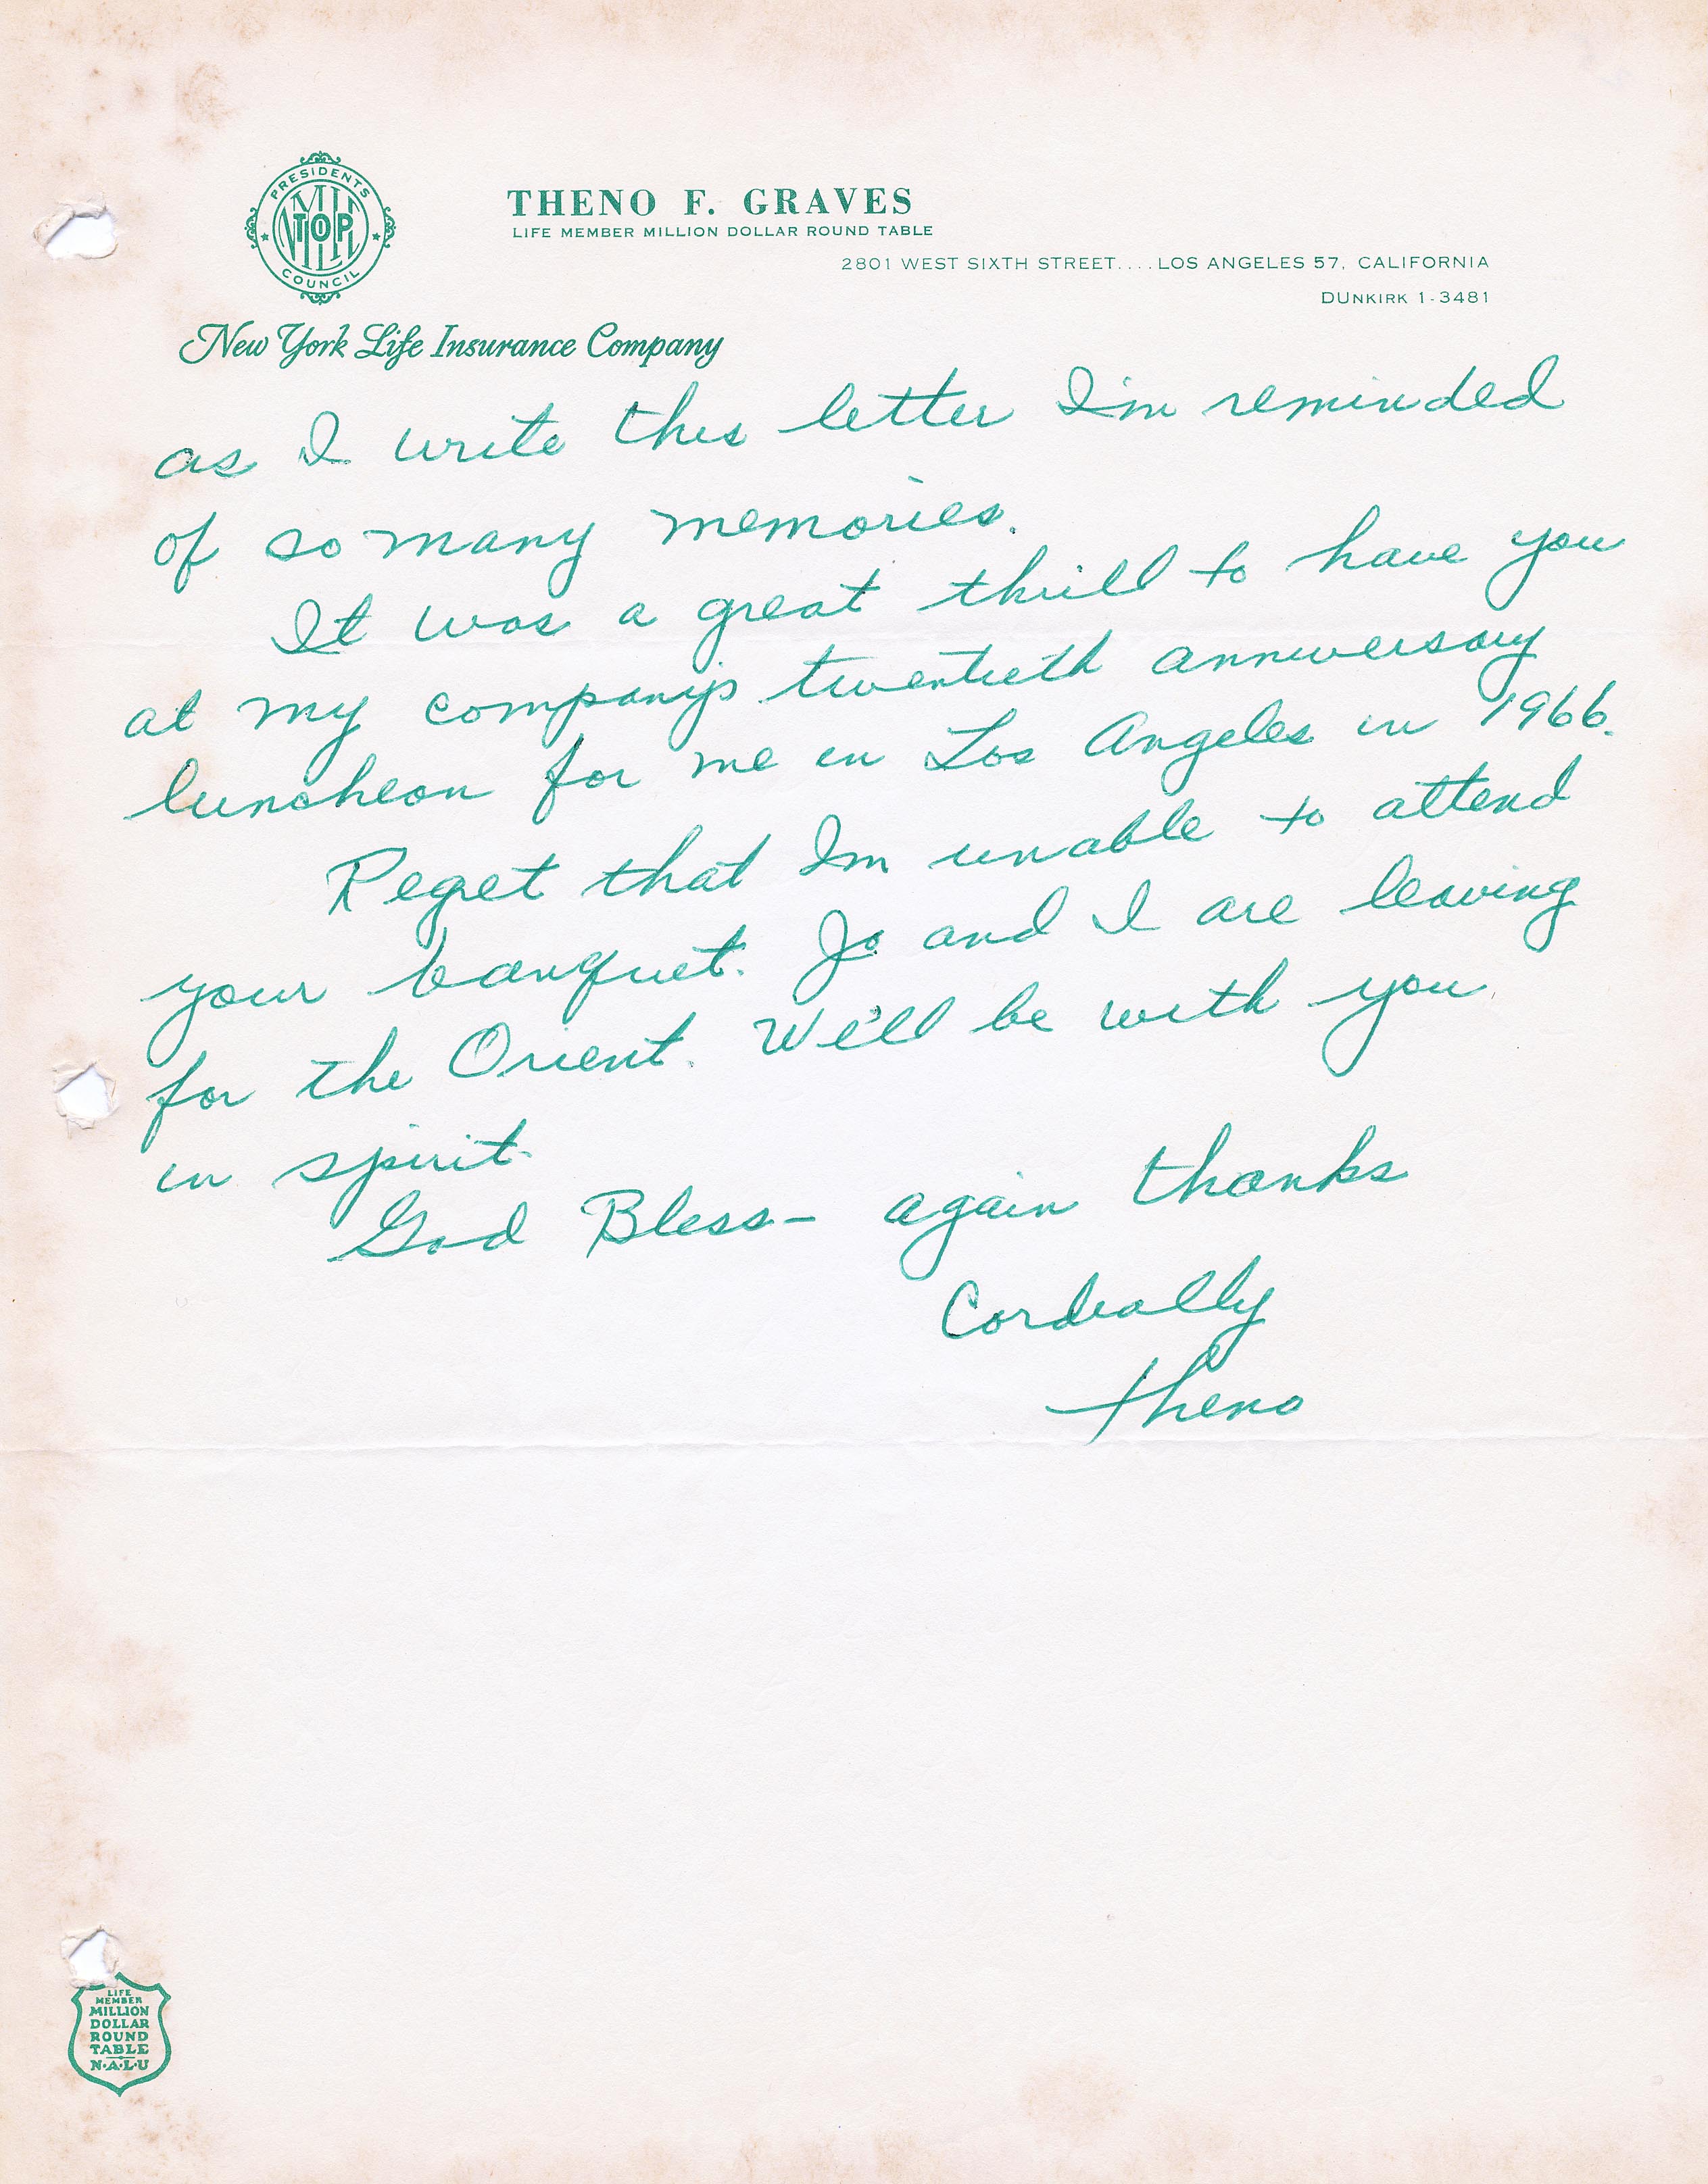 PRESIDENTS
TOP
COUNCIL
THENO F. GRAVES
LIFE MEMBER MILLION DOLLAR ROUND TABLE
2801 WEST SIXTH STREET....LOS ANGELES 57, CALIFORNIA
DUNKIRK 1-3481
New York Life Insurance Company
as I write this letter I'm reminded
of so many memories.
It was a great thrill to have you
at my company's twentieth anniversary
luncheon for me in Los Angeles in 1966.
Regret that Im unable to attend
your banquet. Jo and I are leaving
for the Orient. We'll be with you
in spirit.
God Bless- again thanks
Cordially
Theno
LIFE
MEMBER
MILLION
DOLLAR
ROUND
TABLE
N·A·L·U